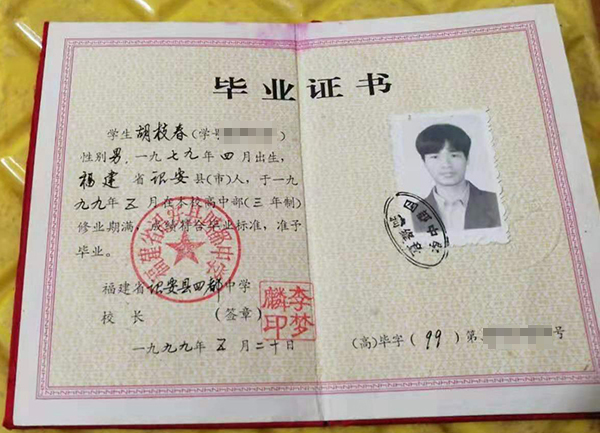 毕业证书
学生胡枝春(学号        )
性别男,一九七九年四月出生,
福建省诏安县(市)人,于一九
九九年五月在本校高中部(三年制)
修业期满,成绩符合毕业标准,准予
毕业。
福建省诏安县四都中学
校长        (签章)
李梦麟印
一九九九年五月二十日
四都中学
(高)毕字(99)第        号